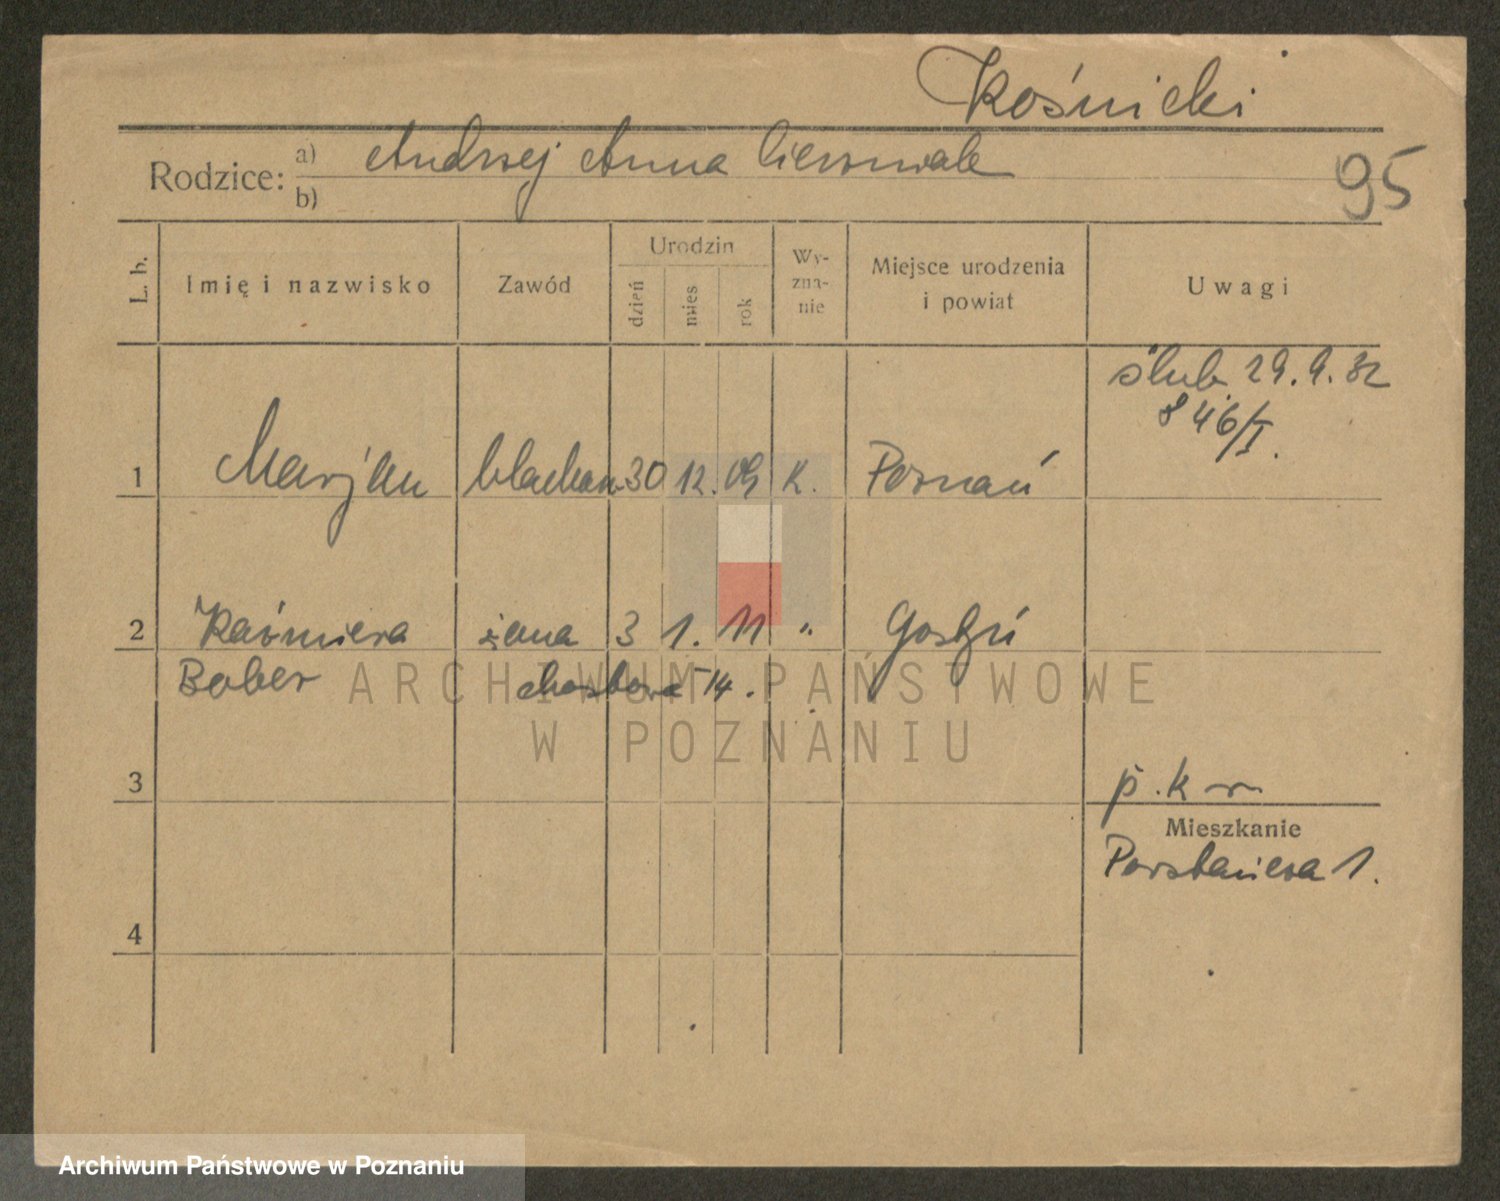 Kośnicki
Rodzice: a) Andrzej Anna
b)
95
L. b. Imię i nazwisko Zawód Urodzin dzień mies rok Wy-zna-nie Miejsce urodzenia i powiat Uwagi
ślub 29.9.32
846/I.
1 Marjan 30 12. 09 K. Poznań
2 Kaźmiera żona 3 1. 11 " Gostyń
Bober 14.
ARCHIWUM PAŃSTWOWE
W POZNANIU
3 p.k
Mieszkanie
1.
4
Archiwum Państwowe w Poznaniu